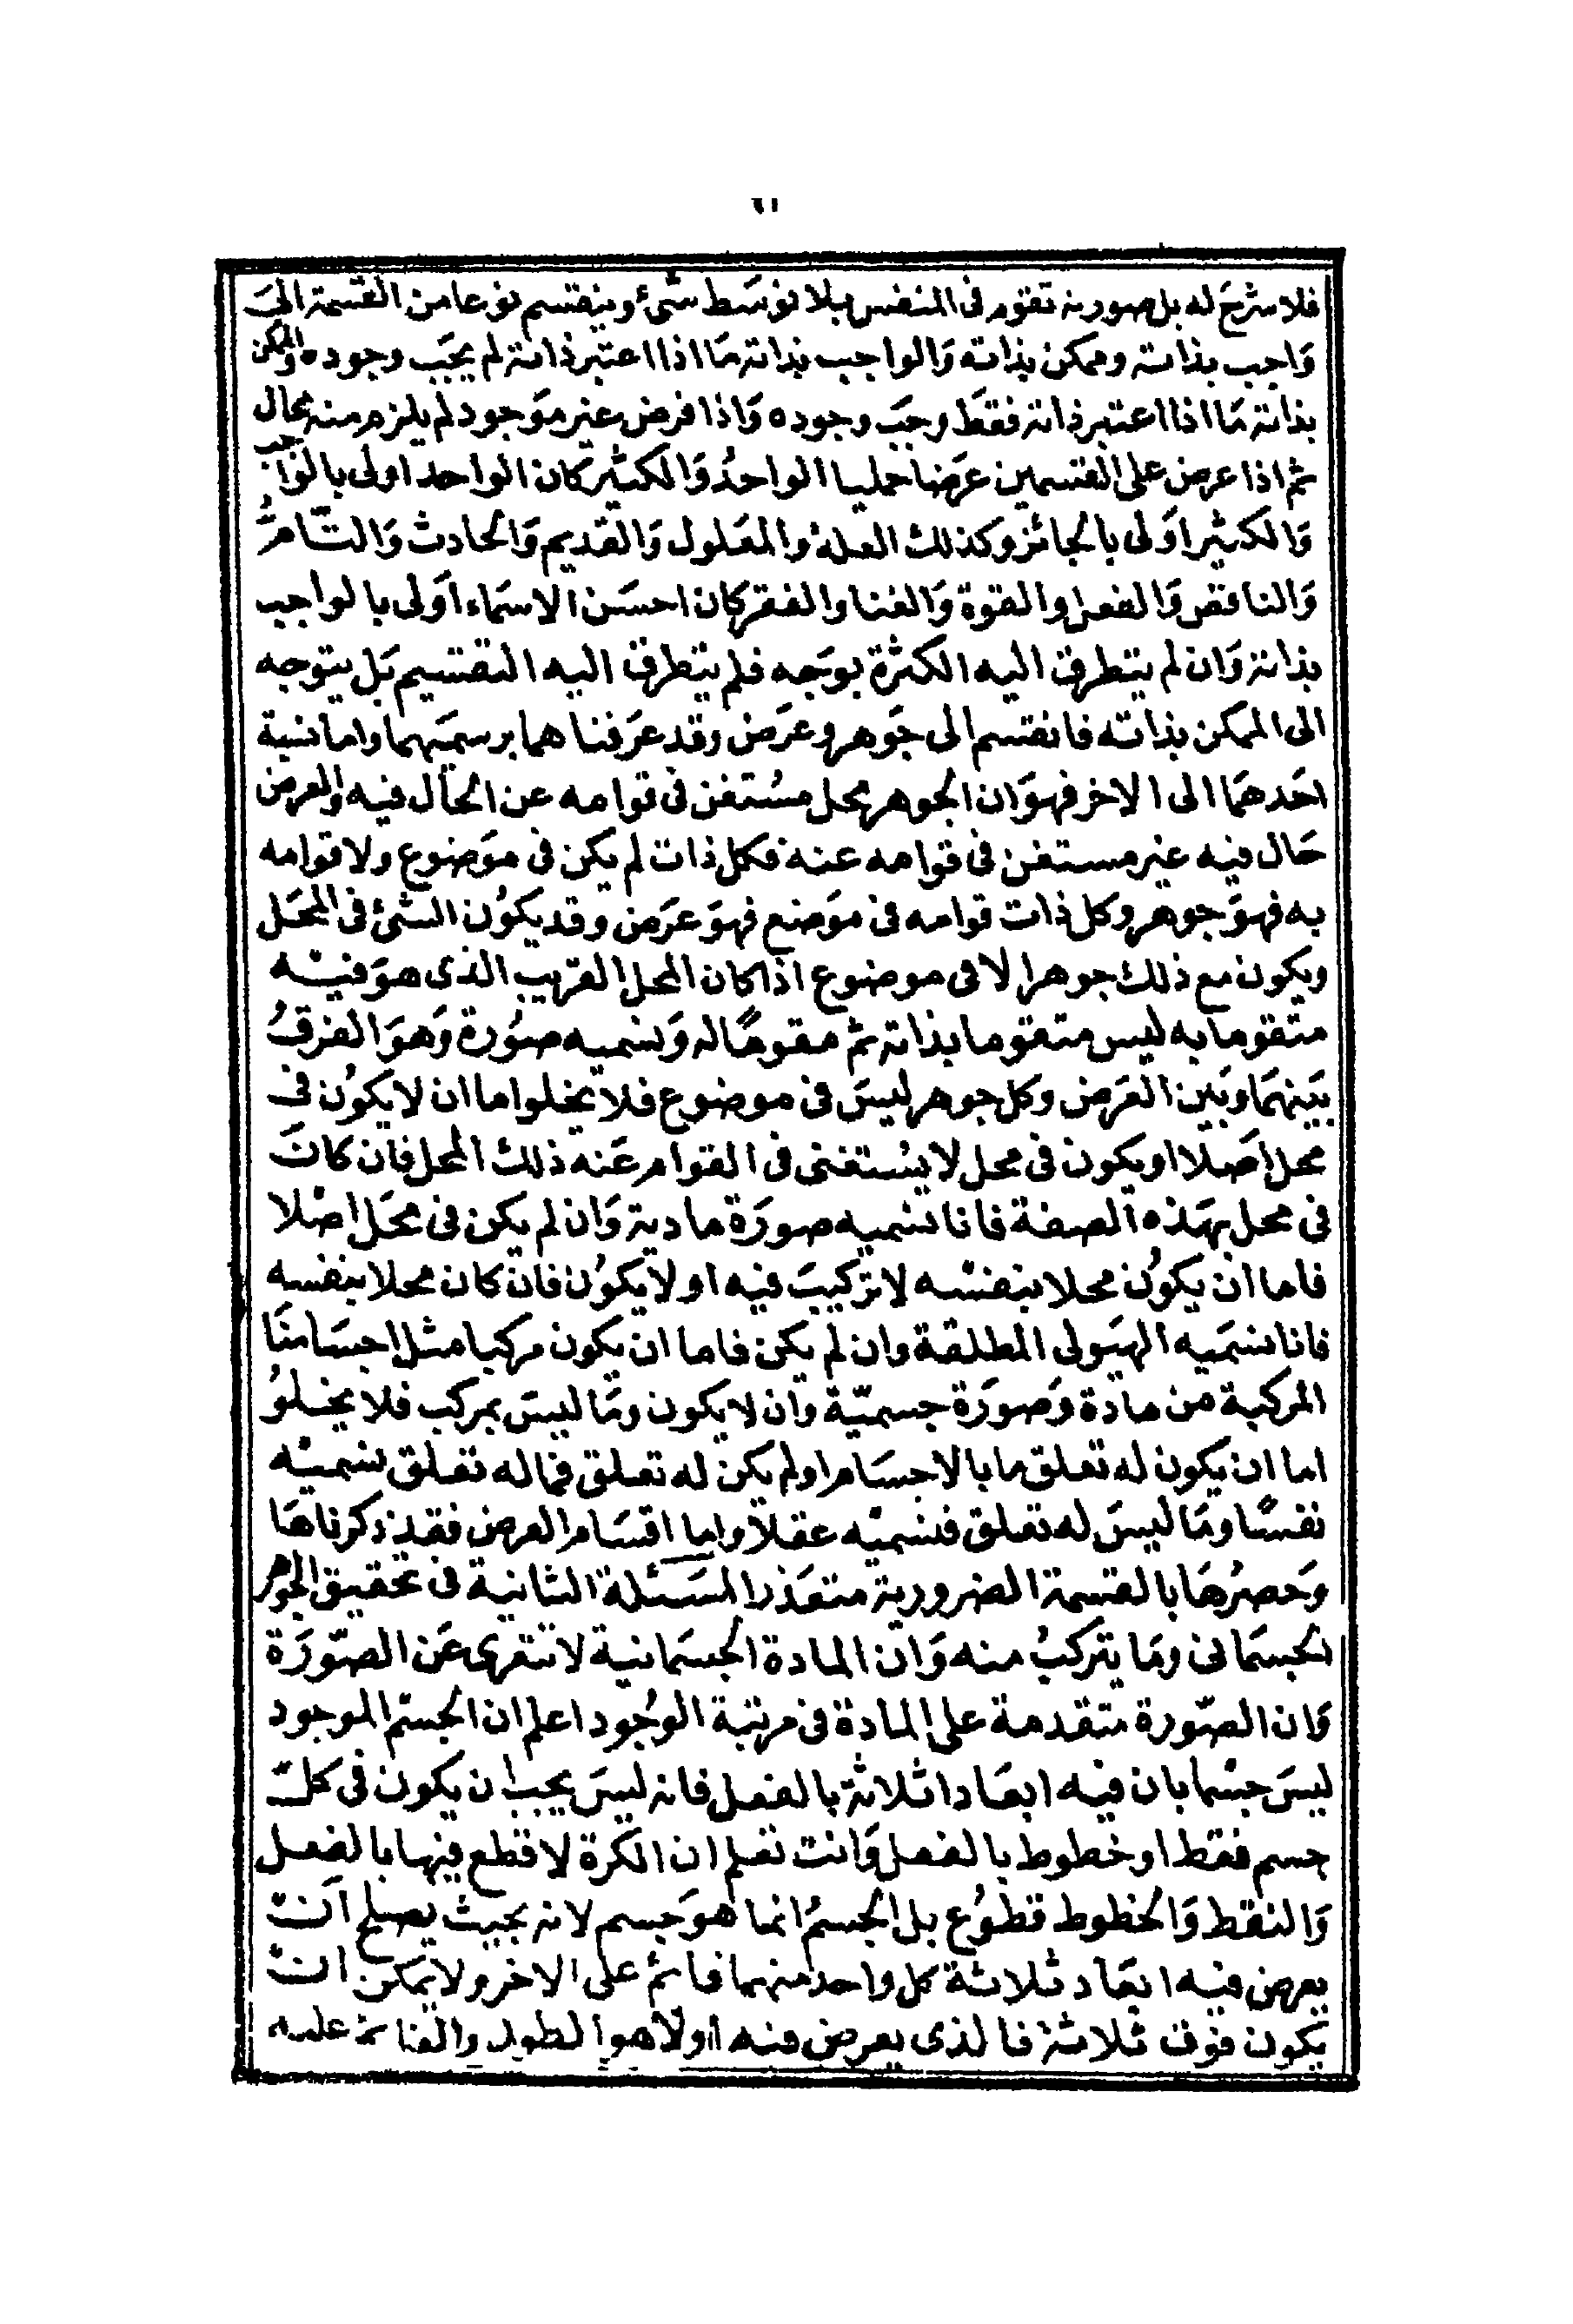 ٢١
فلا شرح له بل صورته تقوم فى النفس بلا توسط شئ وينقسم نوعا من القسمة الى
واجب بذاته وممكن بذاته والواجب بذاته ما اذا اعتبر ذاته لم يجب وجوده والممكن
بذاته ما اذا اعتبر ذاته فقط وجب وجوده واذا فرض غير موجود لم يلزم منه محال
ثم اذا عرض على القسمين عرضا حمليا الواحدُ والكثير كان الواحد اولى بالواجب
والكثير اولى بالجائز وكذلك العلة والمعلول والقديم والحادث والتّامُّ
والناقص والفعل والقوة والغنا والفقر كان احسن الاسماء اولى بالواجب
بذاته وان لم يتطرق اليه الكثرة بوجه فلم يتطرق اليه التقسيم بل يتوجه
الى الممكن بذاته فانقسم الى جوهر وعرض وقد عرفناهما برسميهما واما نسبة
احدهما الى الاخر فهو ان الجوهر محل مستغن فى قوامه عن الحال فيه والعرض
حال فيه غير مستغن فى قوامه عنه فكل ذات لم يكن فى موضوع ولا قوامه
به فهو جوهر وكل ذات قوامه فى موضع فهو عرض وقد يكون الشئ فى المحل
ويكون مع ذلك جوهرا لا فى موضوع اذا كان المحل القريب الذى هو فيه
متقوما به ليس متقوما بذاته ثم مقومًا له ونسميه صورة وهو الفرقُ
بينهما وبين العرض وكل جوهر ليس فى موضوع فلا يخلوا ما ان لا يكون فى
محل اصلا او يكون فى محل لا يستغنى فى القوام عنه ذلك المحل فان كان
فى محل بهذه الصفة فانا نسميه صورة مادية وان لم يكن فى محل اصلا
فاما ان يكون محلا بنفسه لا تركيب فيه او لا يكون فان كان محلا بنفسه
فانا نسميه الهيولى المطلقة وان لم يكن فاما ان يكون مركبا مثل اجسامنا
المركبة من مادة وصورة جسميّة وان لا يكون وما ليس بمركب فلا يخلوُ
اما ان يكون له تعلق ما بالاجسام او لم يكن له تعلق فما له تعلق نسميه
نفسًا وما ليس له تعلق فنسميه عقلا واما اقسام العرض فقد ذكرناها
وحصرُها بالقسمة الضرورية متعذر المسئلة الثانية فى تحقيق الجوهر
الجسمانى وما يتركبُ منه وان المادة الجسمانية لا تتعرى عن الصّورة
وان الصّورة متقدمة على المادة فى مرتبة الوجود اعلم ان الجسم الموجود
ليس جسما بان فيه ابعادا ثلاثة بالفعل فانه ليس يجب ان يكون فى كلّ
جسم نقط او خطوط بالفعل وانت تعلم ان الكرة لا قطع فيها بالفعل
والنقط والخطوط قطوع بل الجسمُ انما هو جسم لانه بحيث يصلح ان
يعرض فيه ابعاد ثلاثة كل واحد منهما قائم على الاخر ولا يمكن ان
يكون فوق ثلاثة فالذى يعرض فيه اولا هو الطول والقائم عليه